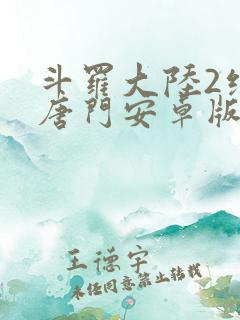 斗羅大陸2絕
唐門安卓版
王德宇
未任同意禁止转载